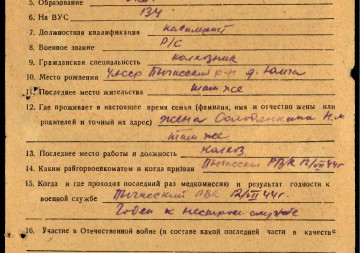 5. Образование
6. На ВУС 134
7. Должностная квалификация кавалерист
8. Военное звание Р/С
9. Гражданская специальность колхозник
10. Место рождения р-н д. Юлта
11. Последнее место жительства там же
12. Где проживает в настоящее время семья (фамилия, имя и отчество жены или
родителей и точный их адрес) жена Н.М.
там же
13. Последнее место работы и должность колхоз
14. Каким райгорвоенкоматом и когда призван РВК 12/VII 44г.
15. Когда и где проходил последний раз медкомиссию и результат годности к
военной службе РВК 12/VII 44г.
Годен к нестроевой службе
16. Участие в Отечественной войне (в составе какой последней части в качестве